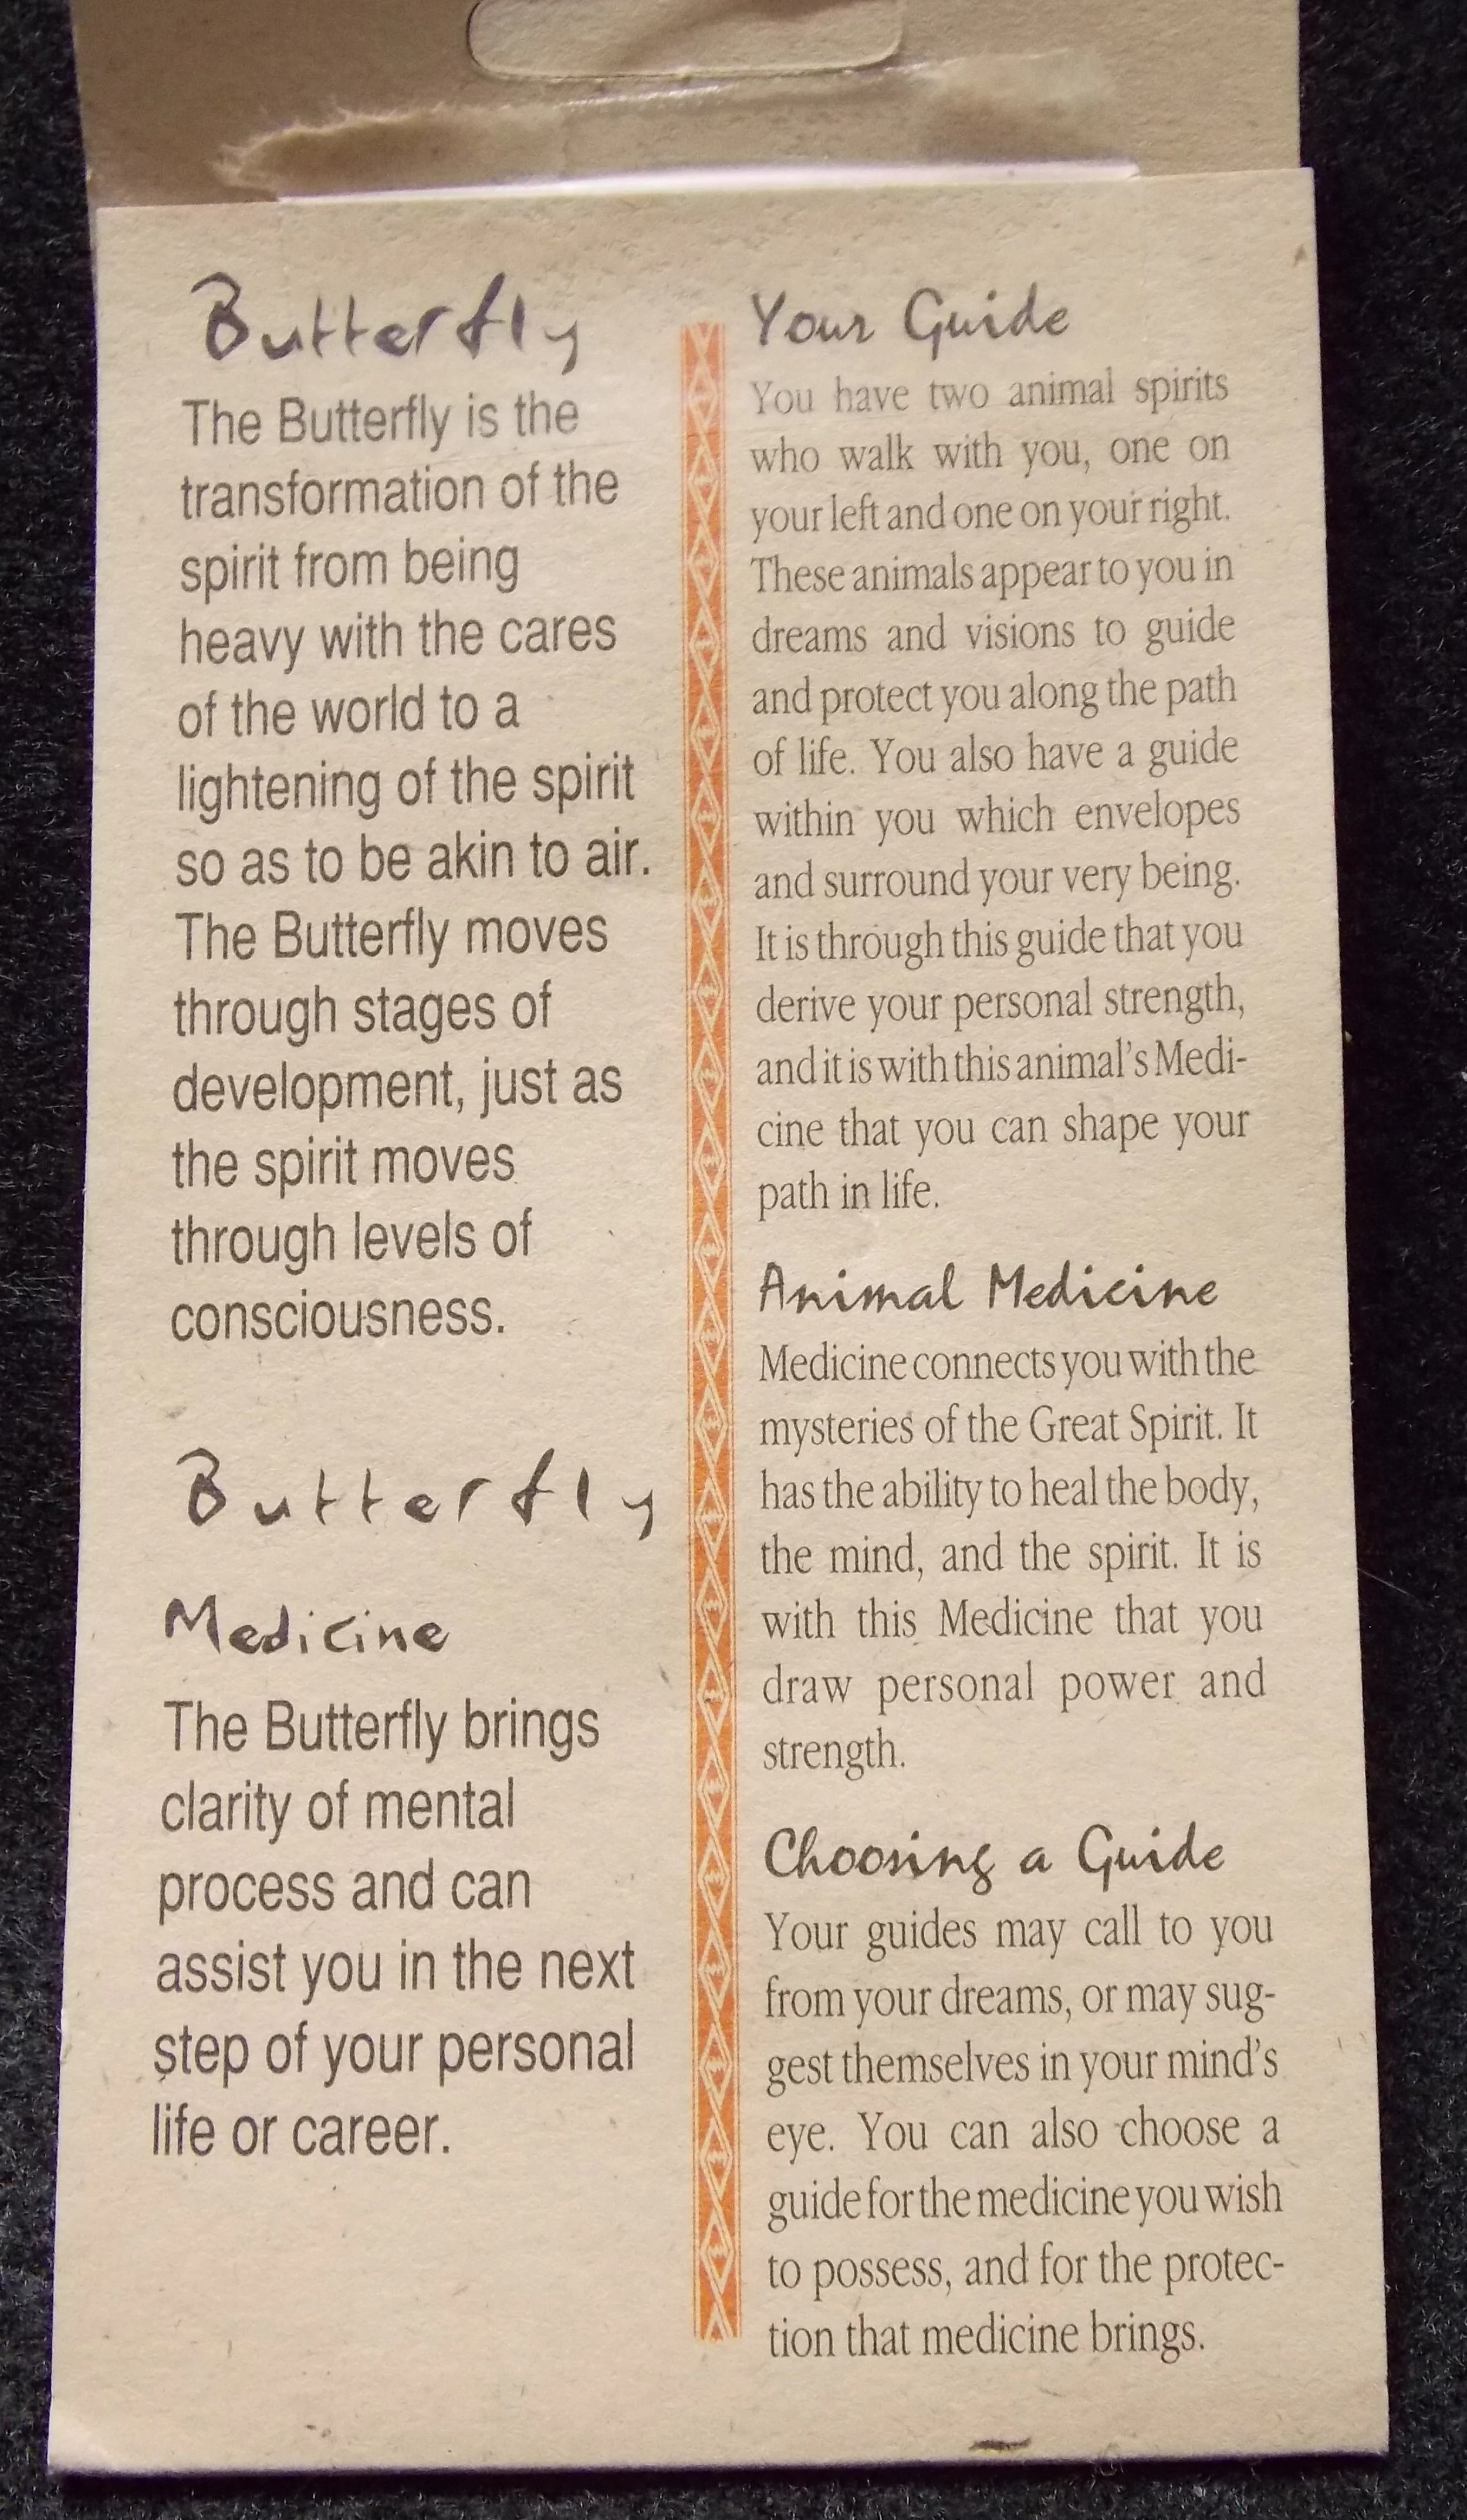 Butterfly
The Butterfly is the
transformation of the
spirit from being
heavy with the cares
of the world to a
lightening of the spirit
so as to be akin to air.
The Butterfly moves
through stages of
development, just as
the spirit moves
through levels of
consciousness.
Butterfly
Medicine
The Butterfly brings
clarity of mental
process and can
assist you in the next
step of your personal
life or career.
Your Guide
You have two animal spirits
who walk with you, one on
your left and one on your right.
These animals appear to you in
dreams and visions to guide
and protect you along the path
of life. You also have a guide
within you which envelopes
and surround your very being.
It is through this guide that you
derive your personal strength,
and it is with this animal's Medi-
cine that you can shape your
path in life.
Animal Medicine
Medicine connects you with the
mysteries of the Great Spirit. It
has the ability to heal the body,
the mind, and the spirit. It is
with this Medicine that you
draw personal power and
strength.
Choosing a Guide
Your guides may call to you
from your dreams, or may sug-
gest themselves in your mind's
eye. You can also choose a
guide for the medicine you wish
to possess, and for the protec-
tion that medicine brings.